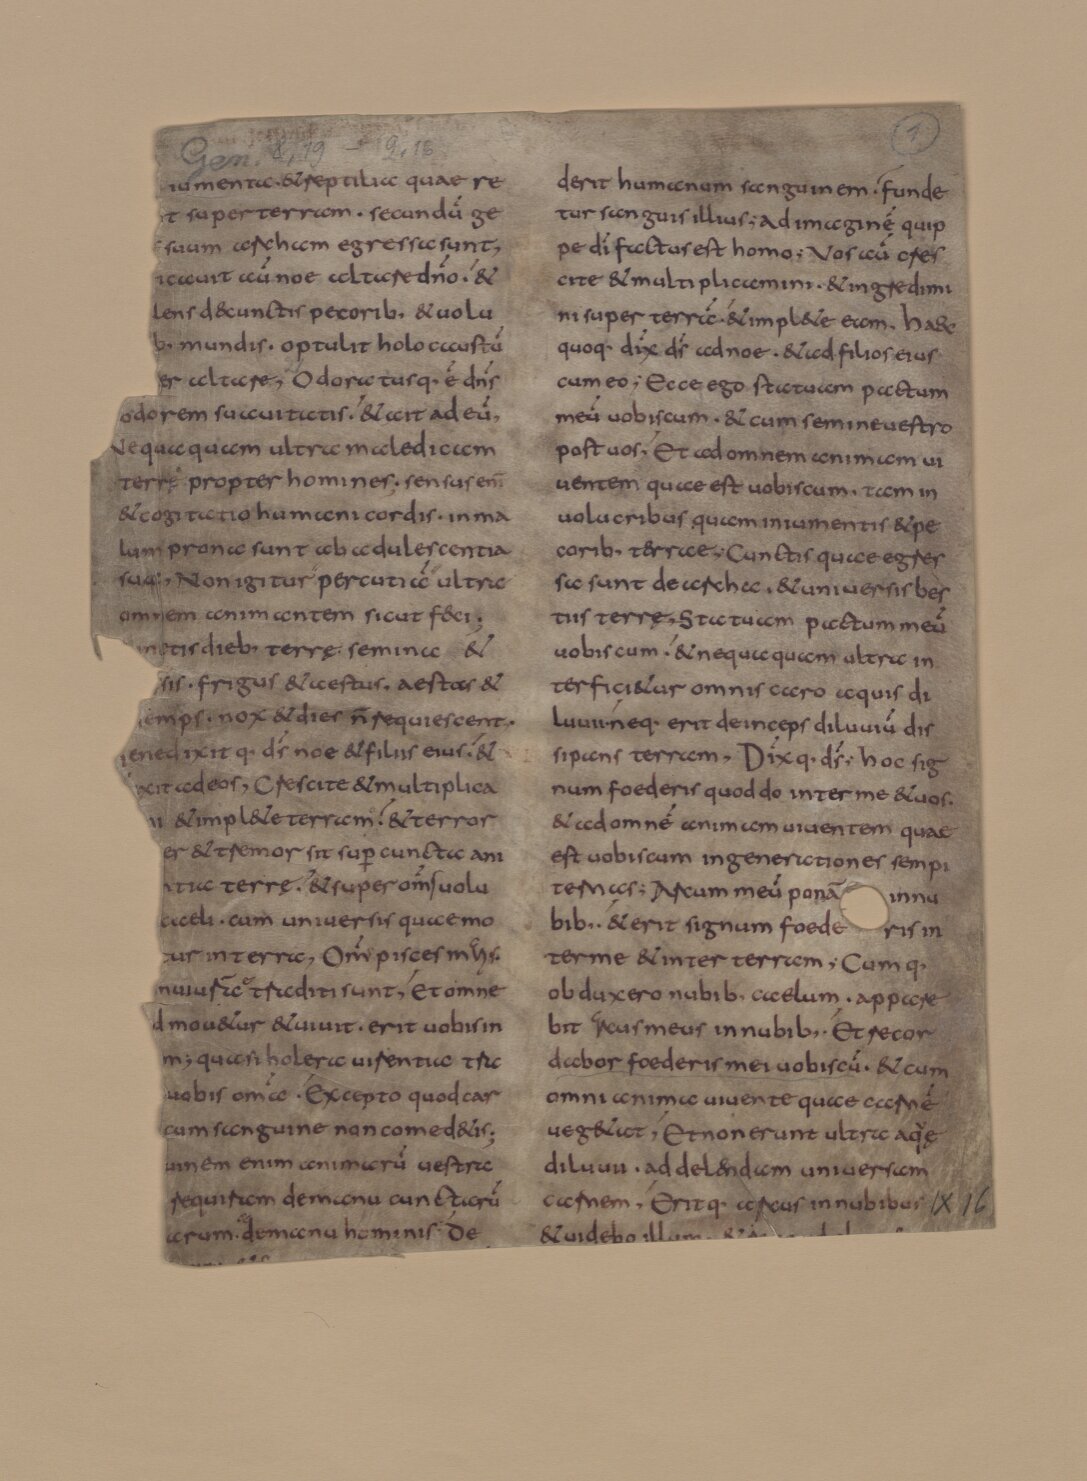 Gen. 8,19 – 9,18
1
iumenta · & reptilia quae re
t super terram · secundū ge
suum archam egressa sunt,
icauit aū noe altare dn̄o · &
lens d& cunctis pecorib; & uolu
b; mundis · optulit holocaustū
er altare; Odoratusq· ē dn̄s
odorem suauitatis · & ait ad eū,
Nequaquam ultra maledicam
terrę propter homines · sensus em̄
& cogitatio humani cordis · in ma
lum prona sunt ab adulescentia
sua; Non igitur percutiā ultra
omnem animantem sicut feci;
tis dieb; terrę · semina &
sis · frigus & aestus, aestas &
iemps · nox & dies n̄ requiescent ·
enedixitq· ds̄ noe & filiis eius · &
xit ad eos, Crescite & multiplica
ni & impl&e terram · & terror
er & tremor sit sup cuncta ani
tia terrę · & super om̄s uolu
caeli · cum uniuersis quae mo
tur in terra, Om̄s pisces m
nui ur̄ae traditi sunt, Et omne
d mou&ur & uiuit · erit uobis in
m; quasi holera uirentia tra
uobis om̄a · Excepto quod car
cum sanguine non comed&is;
uinem enim animarū uestra
requiram de manu cunctarū
arum · & de manu hominis · De
derit humanum sanguinem · funde
tur sanguis illius; Ad imaginē quip
pe dī factus est homo; Vos aū cres
cite & multiplicamini · & ingredimi
ni super terrā · & impl&e eam, Haec
quoq· dix ds̄ ad noe · & ad filios eius
cum eo; Ecce ego statuam pactum
meū uobiscum · & cum semine uestro
post uos; Et ad omnem animam ui
uentem quae est uobiscum · tam in
uolucribus quam in iumentis & pe
corib; terrae; Cunctis quae egres
sa sunt de archa, & uniuersis bes
tiis terrę, Statuam pactum meū
uobiscum · & nequaquam ultra in
terfici&ur omnis caro aquis di
luuii · neq· erit deinceps diluuiū dis
sipans terram, Dixq· ds̄; hoc sig
num foederis quod do inter me & uos.
& ad omnē animam uiuentem quae
est uobiscum in generationes sempi
ternas; Arcum meū ponā in nu
bib; · & erit signum foede ris in
ter me & inter terram; Cumq·
obduxero nubib; caelum · appare
bit arcus meus in nubib; · Et recor
dabor foederis mei uobiscū · & cum
omni anima uiuente quae carnē
ueg&at, Et non erunt ultra aquę
diluuii · ad delendam uniuersam
carnem, Eritq· arcus in nubibus
IX 16
& uidebo illum ·